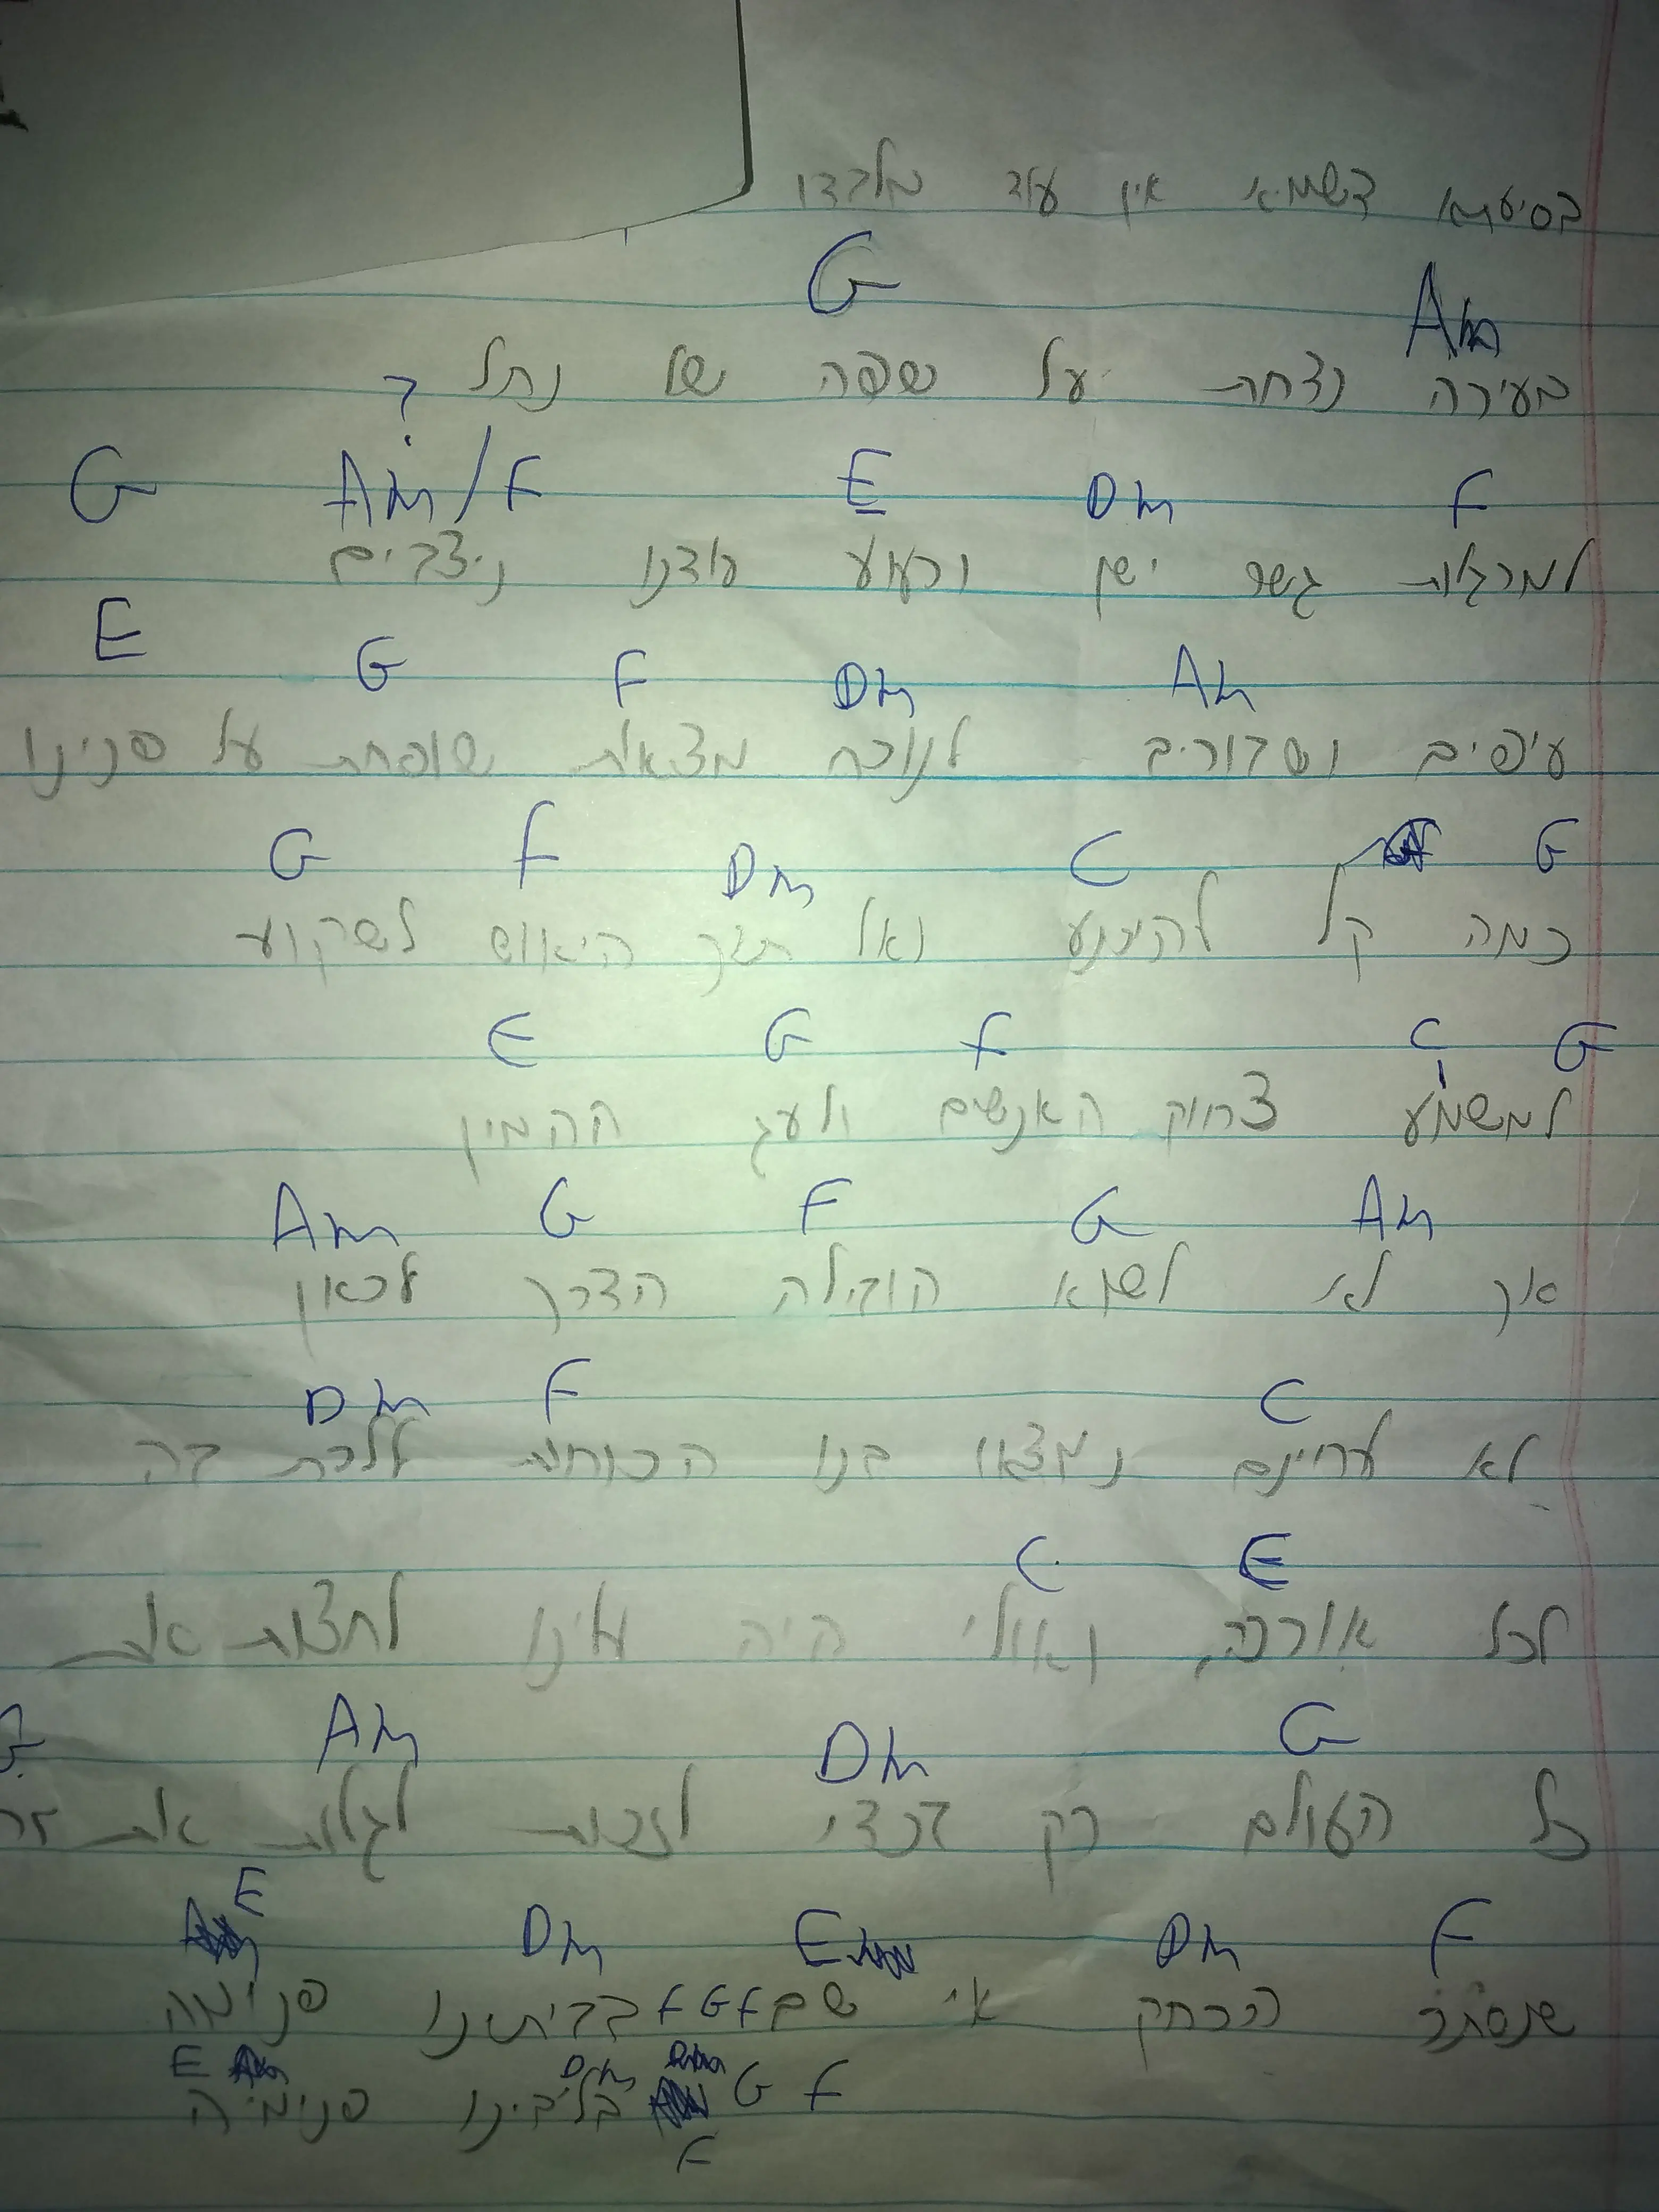 בסיעתא דשמיא אין עוד מלבדו
G Am
בעירה נדחת על שפה של נחל ?
G Am/F E Dm F
למרגלות גשר ישן ורעוע עודנו ניצבים
E G F Dm Am
עיפים ושבורים לנוכח מציאות שופחת על פנינו
G F Dm C G
כמה קל להיכנע ואל תוך היאוש לשקוע
E G F C G
למשמע צחוק האנשים ולעג ההמון
Am G F G Am
אך לא לשוא הובילה הדרך לכאן
Dm F C
לא לחינם נמצאו בנו הכוחות ללכת בה
C E
לכל אורכה, ואולי היה עלינו לחצות את
G Am Dm G
כל העולם רק בכדי לזכות לגלות את זה
E Dm E Dm F
שנסתר הרחק אי שם F G F בביתנו פנימה
E Dm G F
בליבינו פנימה
F